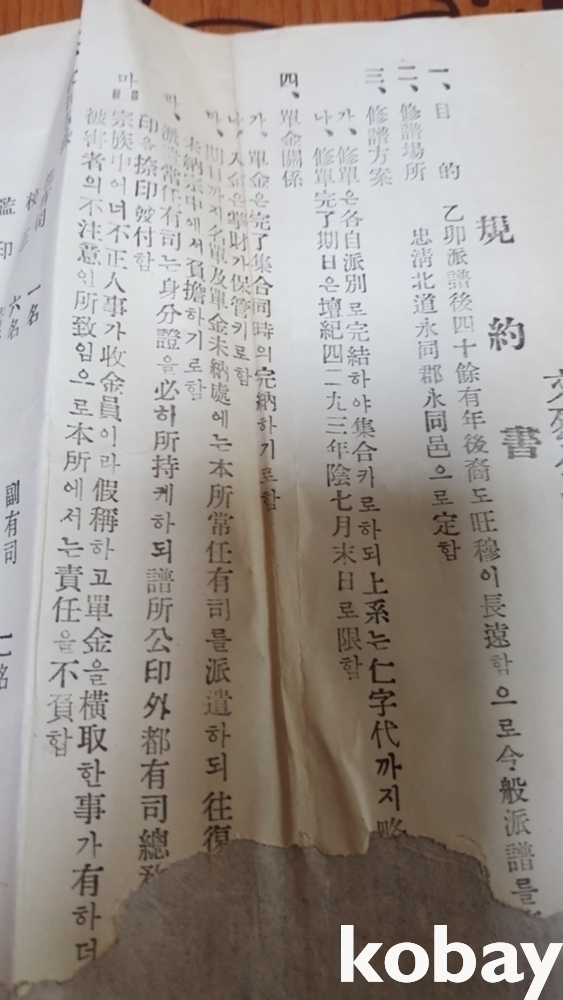 規約書
一、目的 乙卯派譜後四十餘有年後裔도旺穆이長遠함으로今般派譜를
二、修譜場所 忠清北道永同郡永同邑으로定함
三、修譜方案
가、修單은各自派別로完結하야集合키로하되上系는仁字代까지略
나、修單完了期日은壇紀四二九三年陰七月末日로限함
四、單金關係
가、單金은完了集合同時의完納하기로함
나、入金은掌財가保管키로함
期日까지名單及單金未納處에는本所常任有司를派遣하되往復
未納宗中에서負擔하기로함
派 常任有司는身分證을必히所持케하되譜所公印外都有司總
印을捺印發付함
마、宗族中어너不正人事가收金員이라假稱하고單金을橫取한事가有하더
被害者의不注意인所致임으로本所에서는責任을不負함
一名
六名
監印
副有司 一名
kobay